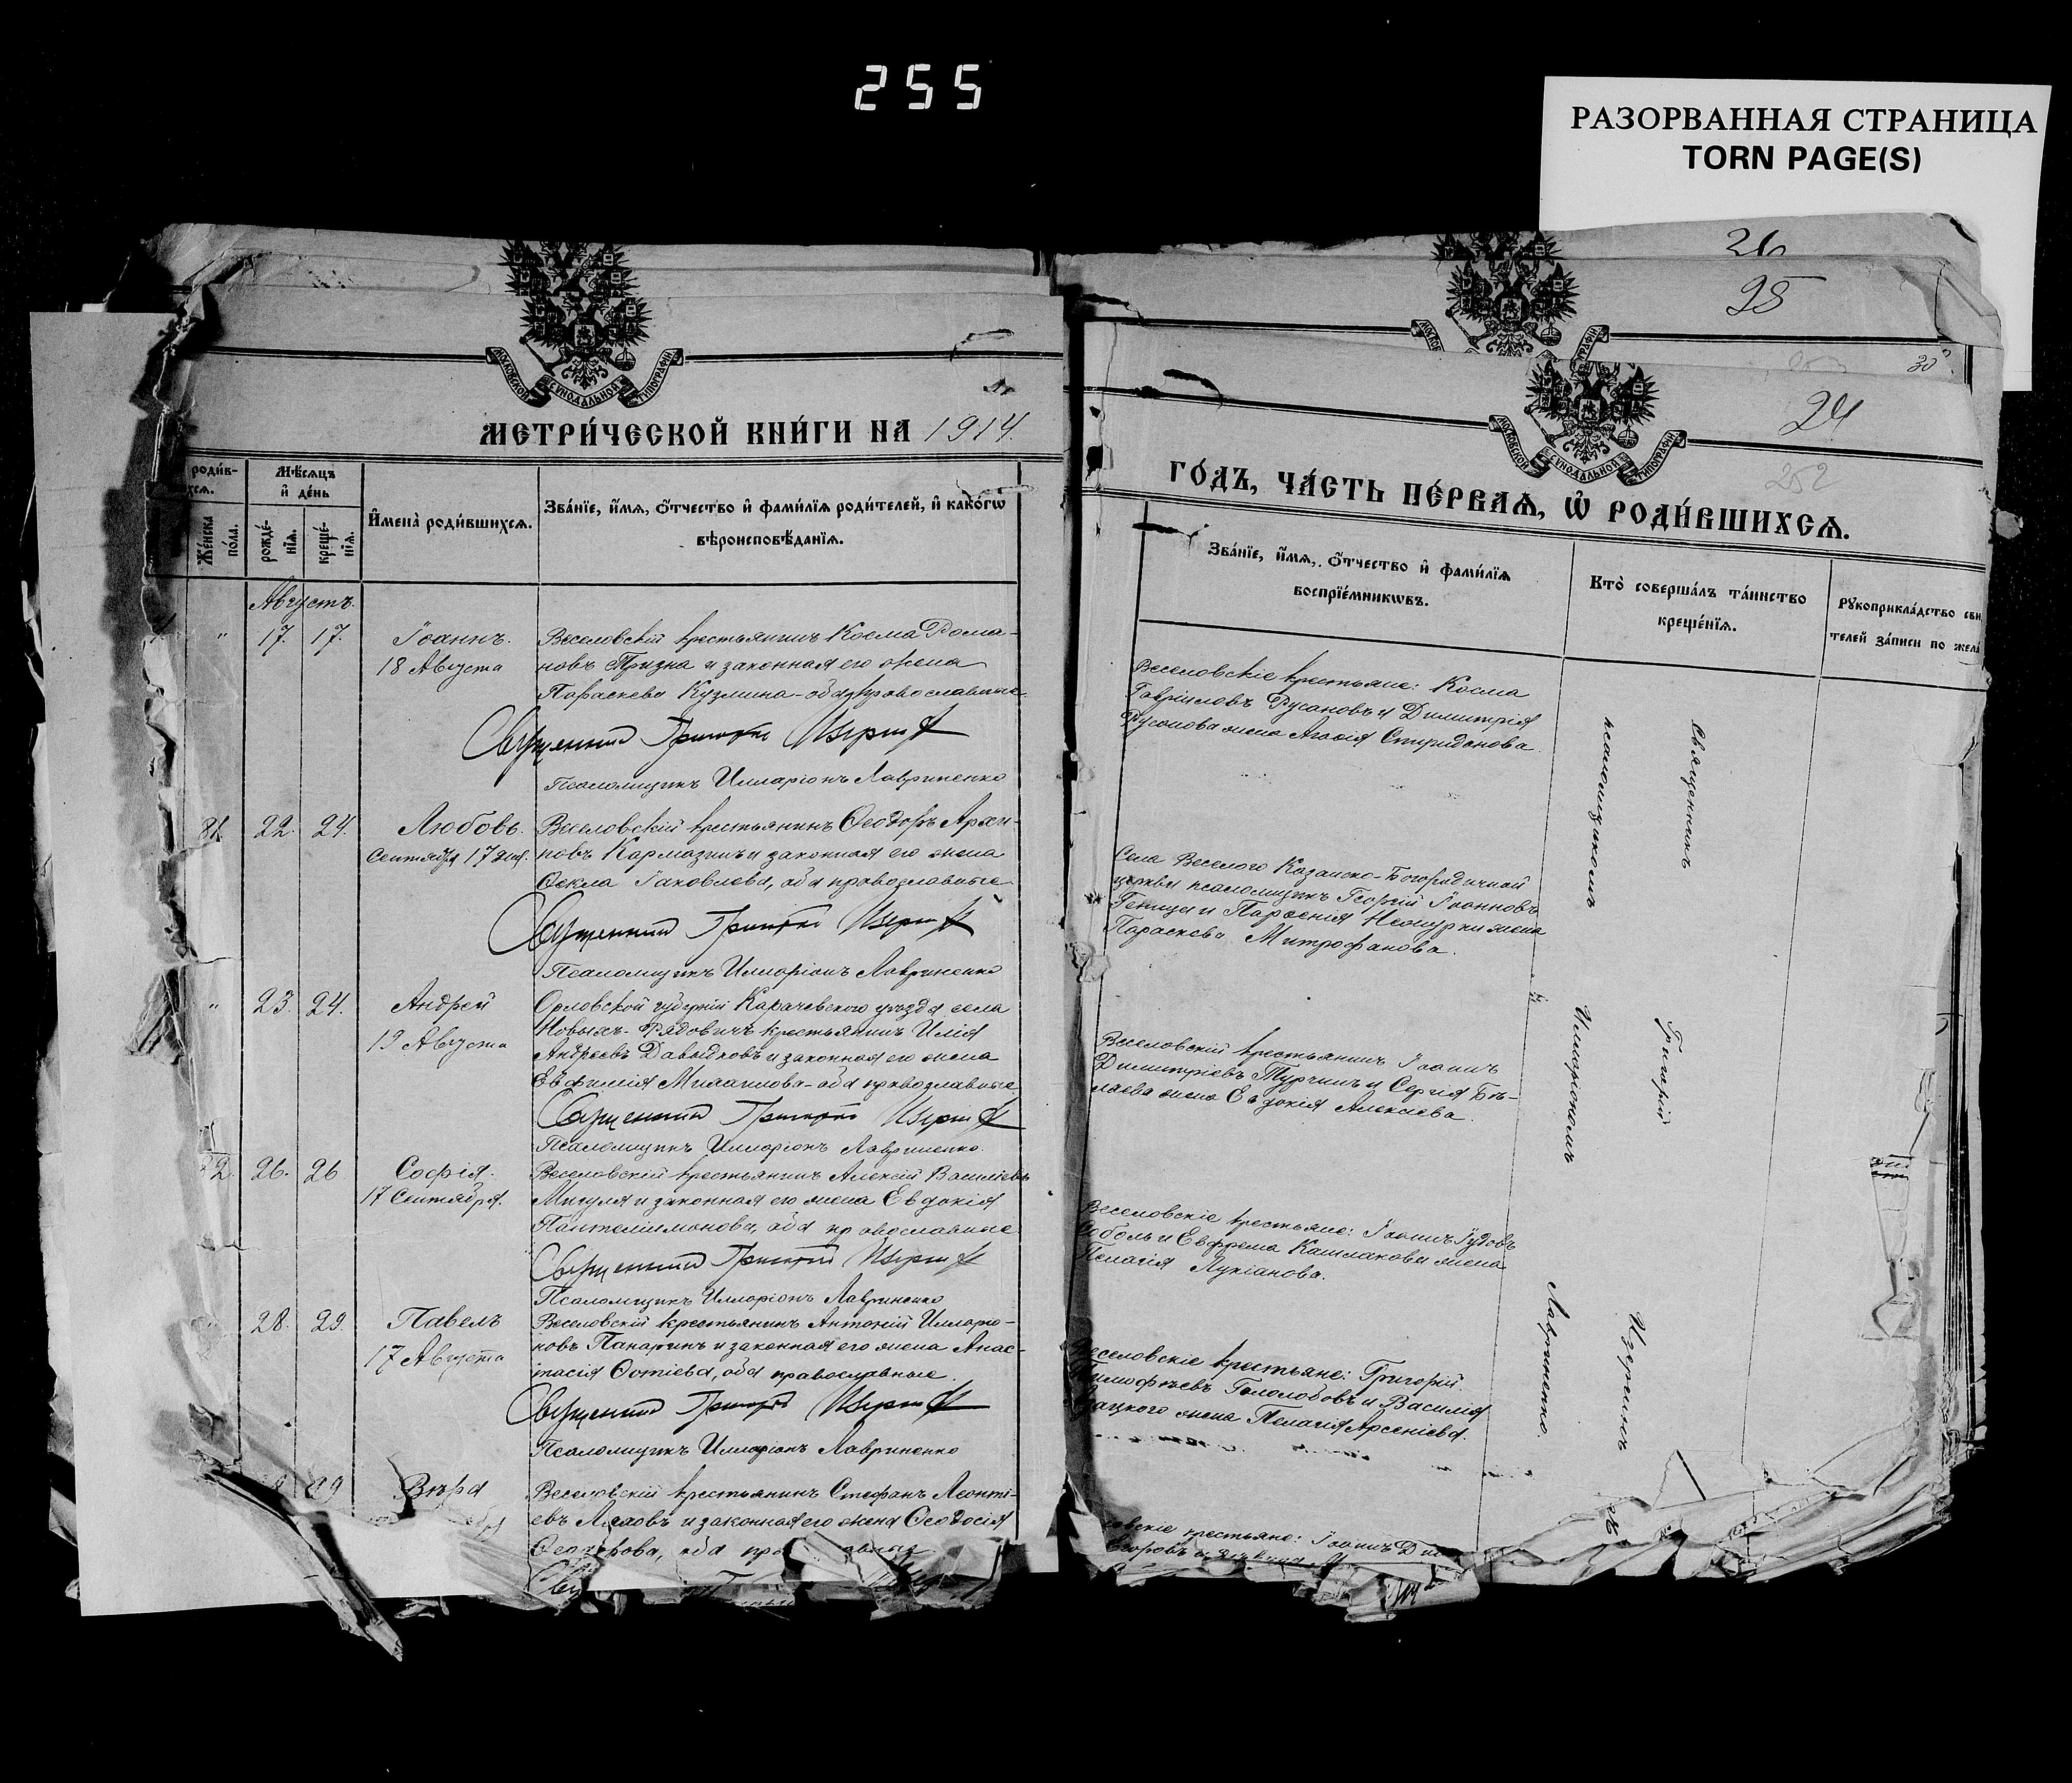 255
РАЗОРВАННАЯ СТРАНИЦА
TORN PAGE(S)
26
25
24
252
МОСКОВСКОЙ СѴНОДАЛЬНОЙ ТИПОГРАФІИ
МЕТРИ́ЧЕСКОЙ КНИ́ГИ НА 1914.
роди́в-
хсѧ.
Же́нска по́ла.
Мѣ́сѧцъ и҆ де́нь
рожде́-нїѧ.
креще́-нїѧ.
И҆мена̀ роди́вшихсѧ.
Зва́нїе, и҆́мѧ, ѻ҆́тчество и҆ фами́лїѧ роди́телей, и҆ како́гѡ
вѣроисповѣ́данїѧ.
Августъ.
" 17. 17. Іоаннъ.
18 Августа
Веселовскій крестьянинъ Косма Рома-
новъ Призна и законная его жена
Параскева Кузмина - оба православные
Священникъ Григорій Изеринъ
Псаломщикъ Илларіонъ Лавриненко
22. 24. Любовь.
Сентября 17 дня.
Веселовскій крестьянинъ Ѳеодоръ Архи-
повъ Кармазинъ и законная его жена
Ѳекла Іаковлева, оба православные
Священникъ Григорій Изеринъ
Псаломщикъ Илларіонъ Лавриненко
" 23. 24. Андрей
19 Августа
Орловской губерніи Карачевского уѣзда села
Новыхъ-Рядовичъ крестьянинъ Илія
Андреевъ Давыдковъ и законная его жена
Евфимія Михаилова - оба православные
Священникъ Григорій Изеринъ
Псаломщикъ Илларіонъ Лавриненко.
22. 26. 26 Софія.
17 Сентября.
Веселовскій крестьянинъ Алексій Василіевъ
Мигуля и законная его жена Евдокія
Пантелимонова, оба православные
Священникъ Григорій Изеринъ
Псаломщикъ Илларіонъ Лавриненко
28. 29. Павелъ
17 Августа
Веселовскій крестьянинъ Антоній Илларіо-
новъ Панаринъ и законная его жена Анас-
тасія Фотіева, оба православные.
Священникъ Григорій Изеринъ
Псаломщикъ Илларіонъ Лавриненко
29 Вѣра
Веселовскій крестьянинъ Стефанъ Леонті-
евъ Ляховъ и законная его жена Ѳеодосія
оба
МОСКОВСКОЙ СѴНОДАЛЬНОЙ ТИПОГРАФІИ
ГО́ДЪ, ЧА́СТЬ ПЕ́РВАѦ, Ѡ҆ РОДИ́ВШИХСѦ.
Зва́нїе, и҆́мѧ, ѻ҆́тчество и҆ фами́лїѧ
воспрїе́мникѡвъ.
Кто̀ соверша́лъ та́инство
креще́нїѧ.
Рꙋкоприкла́дство сви
телей за́писи по жела́
Веселовскіе крестьяне: Косма
Гавріиловъ Русановъ и Димитрія
Русанова жена Агафія Спиридонова.
Села Веселого Казанско-Богородичной
церкви псаломщикъ Георгій Іоанновъ
и Парфенія жена
Параскева Митрофанова.
Веселовскій крестьянинъ Іоаннъ
Димитріевъ Турчинъ и Сергія Бѣ-
лаева жена Евдокія Алексіева.
Веселовскіе крестьяне: Іоаннъ
Соболь и Евфрема Кашлакова жена
Пелагія Лукіанова.
Веселовскіе крестьяне: Григорій
Тимофѣевъ Гололобовъ и Василія
жена Пелагія Арсеніева.
крестьяне: Іоаннъ
Священникъ Григорій Изеринъ
съ
псаломщикомъ Илларіономъ Лавриненко.